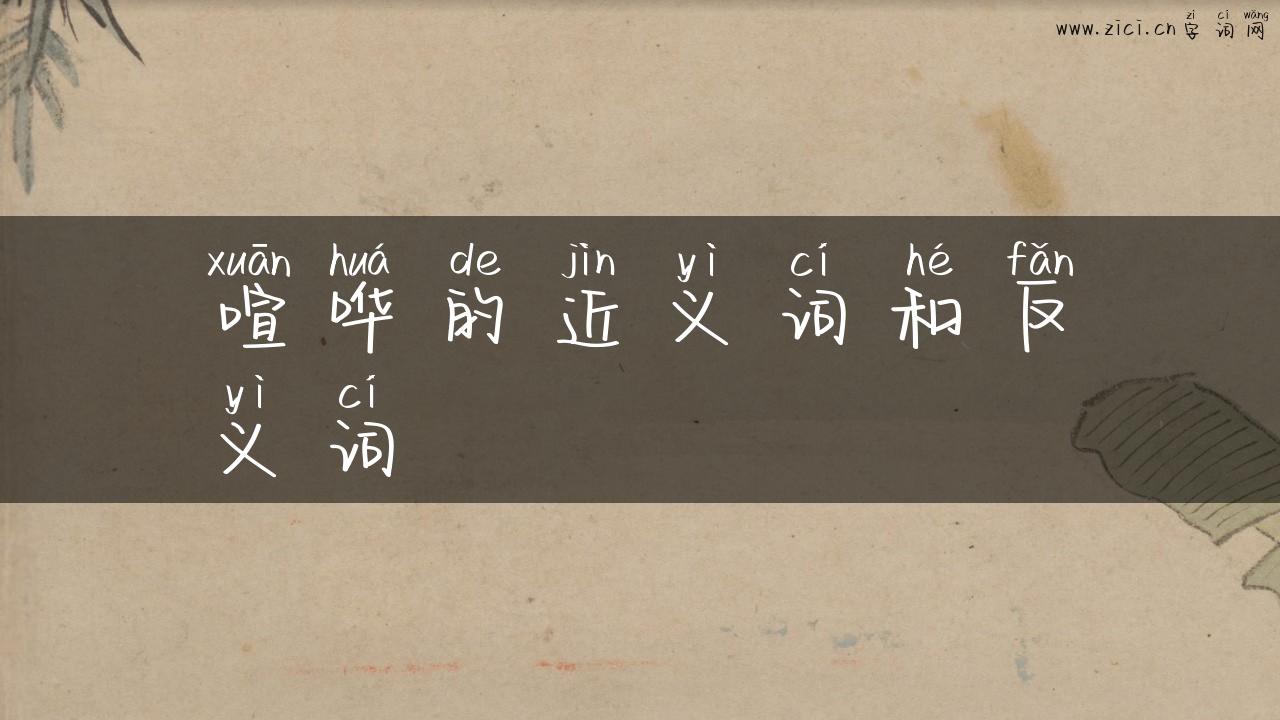 zì cí wǎng
www.zici.cn 字 词 网
xuān huá de jìn yì cí hé fǎn
喧 哗 的 近 义 词 和 反
yì cí
义 词